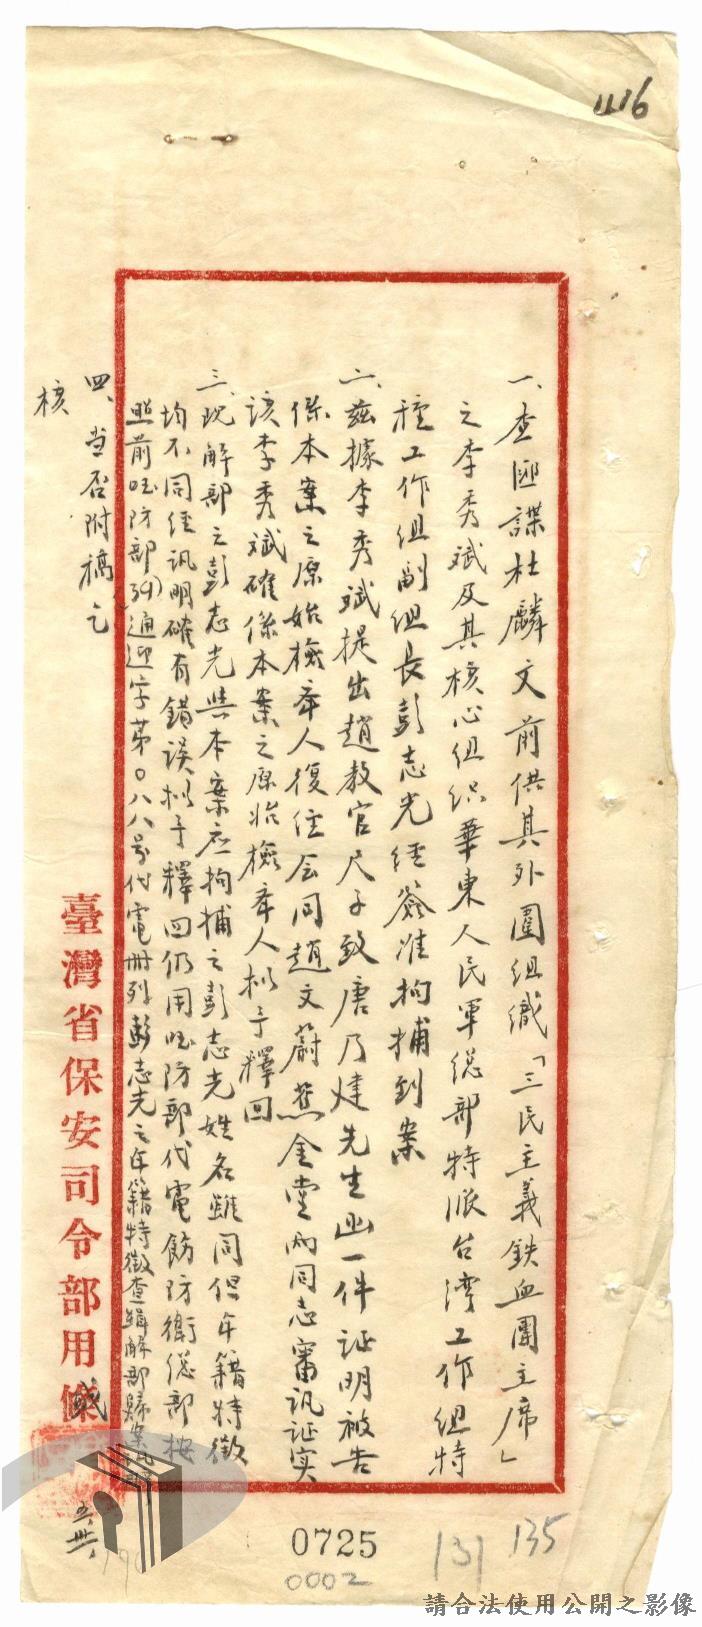 416
一、查匪諜杜麟文前供其外圍組織「三民主義鉄血團主席」
之李秀斌及其核心組织華東人民軍総部特派台湾工作組特
種工作組副組長彭志光经簽准拘捕到案
二、茲據李秀斌提出趙教官尺子致唐乃建先生函一件証明被告
係本案之原始檢举人復经会同趙文蔚蕉金堂两同志審訊证实
该李秀斌確係本案之原始檢举人拟予釋回
三、现解部之彭志光與本案应拘捕之彭志光姓名雖同但年籍特徵
均不同经訊明確有錯误拟予釋回仍用国防部代電飭防衛総部按
照前国防部通迎字第〇八八号代電冊列彭志光之年籍特徵查緝解部歸案訊
四、当否附稿乞
核
臺灣省保安司令部用條
五、卅、
0725
0002
131
135
請合法使用公開之影像